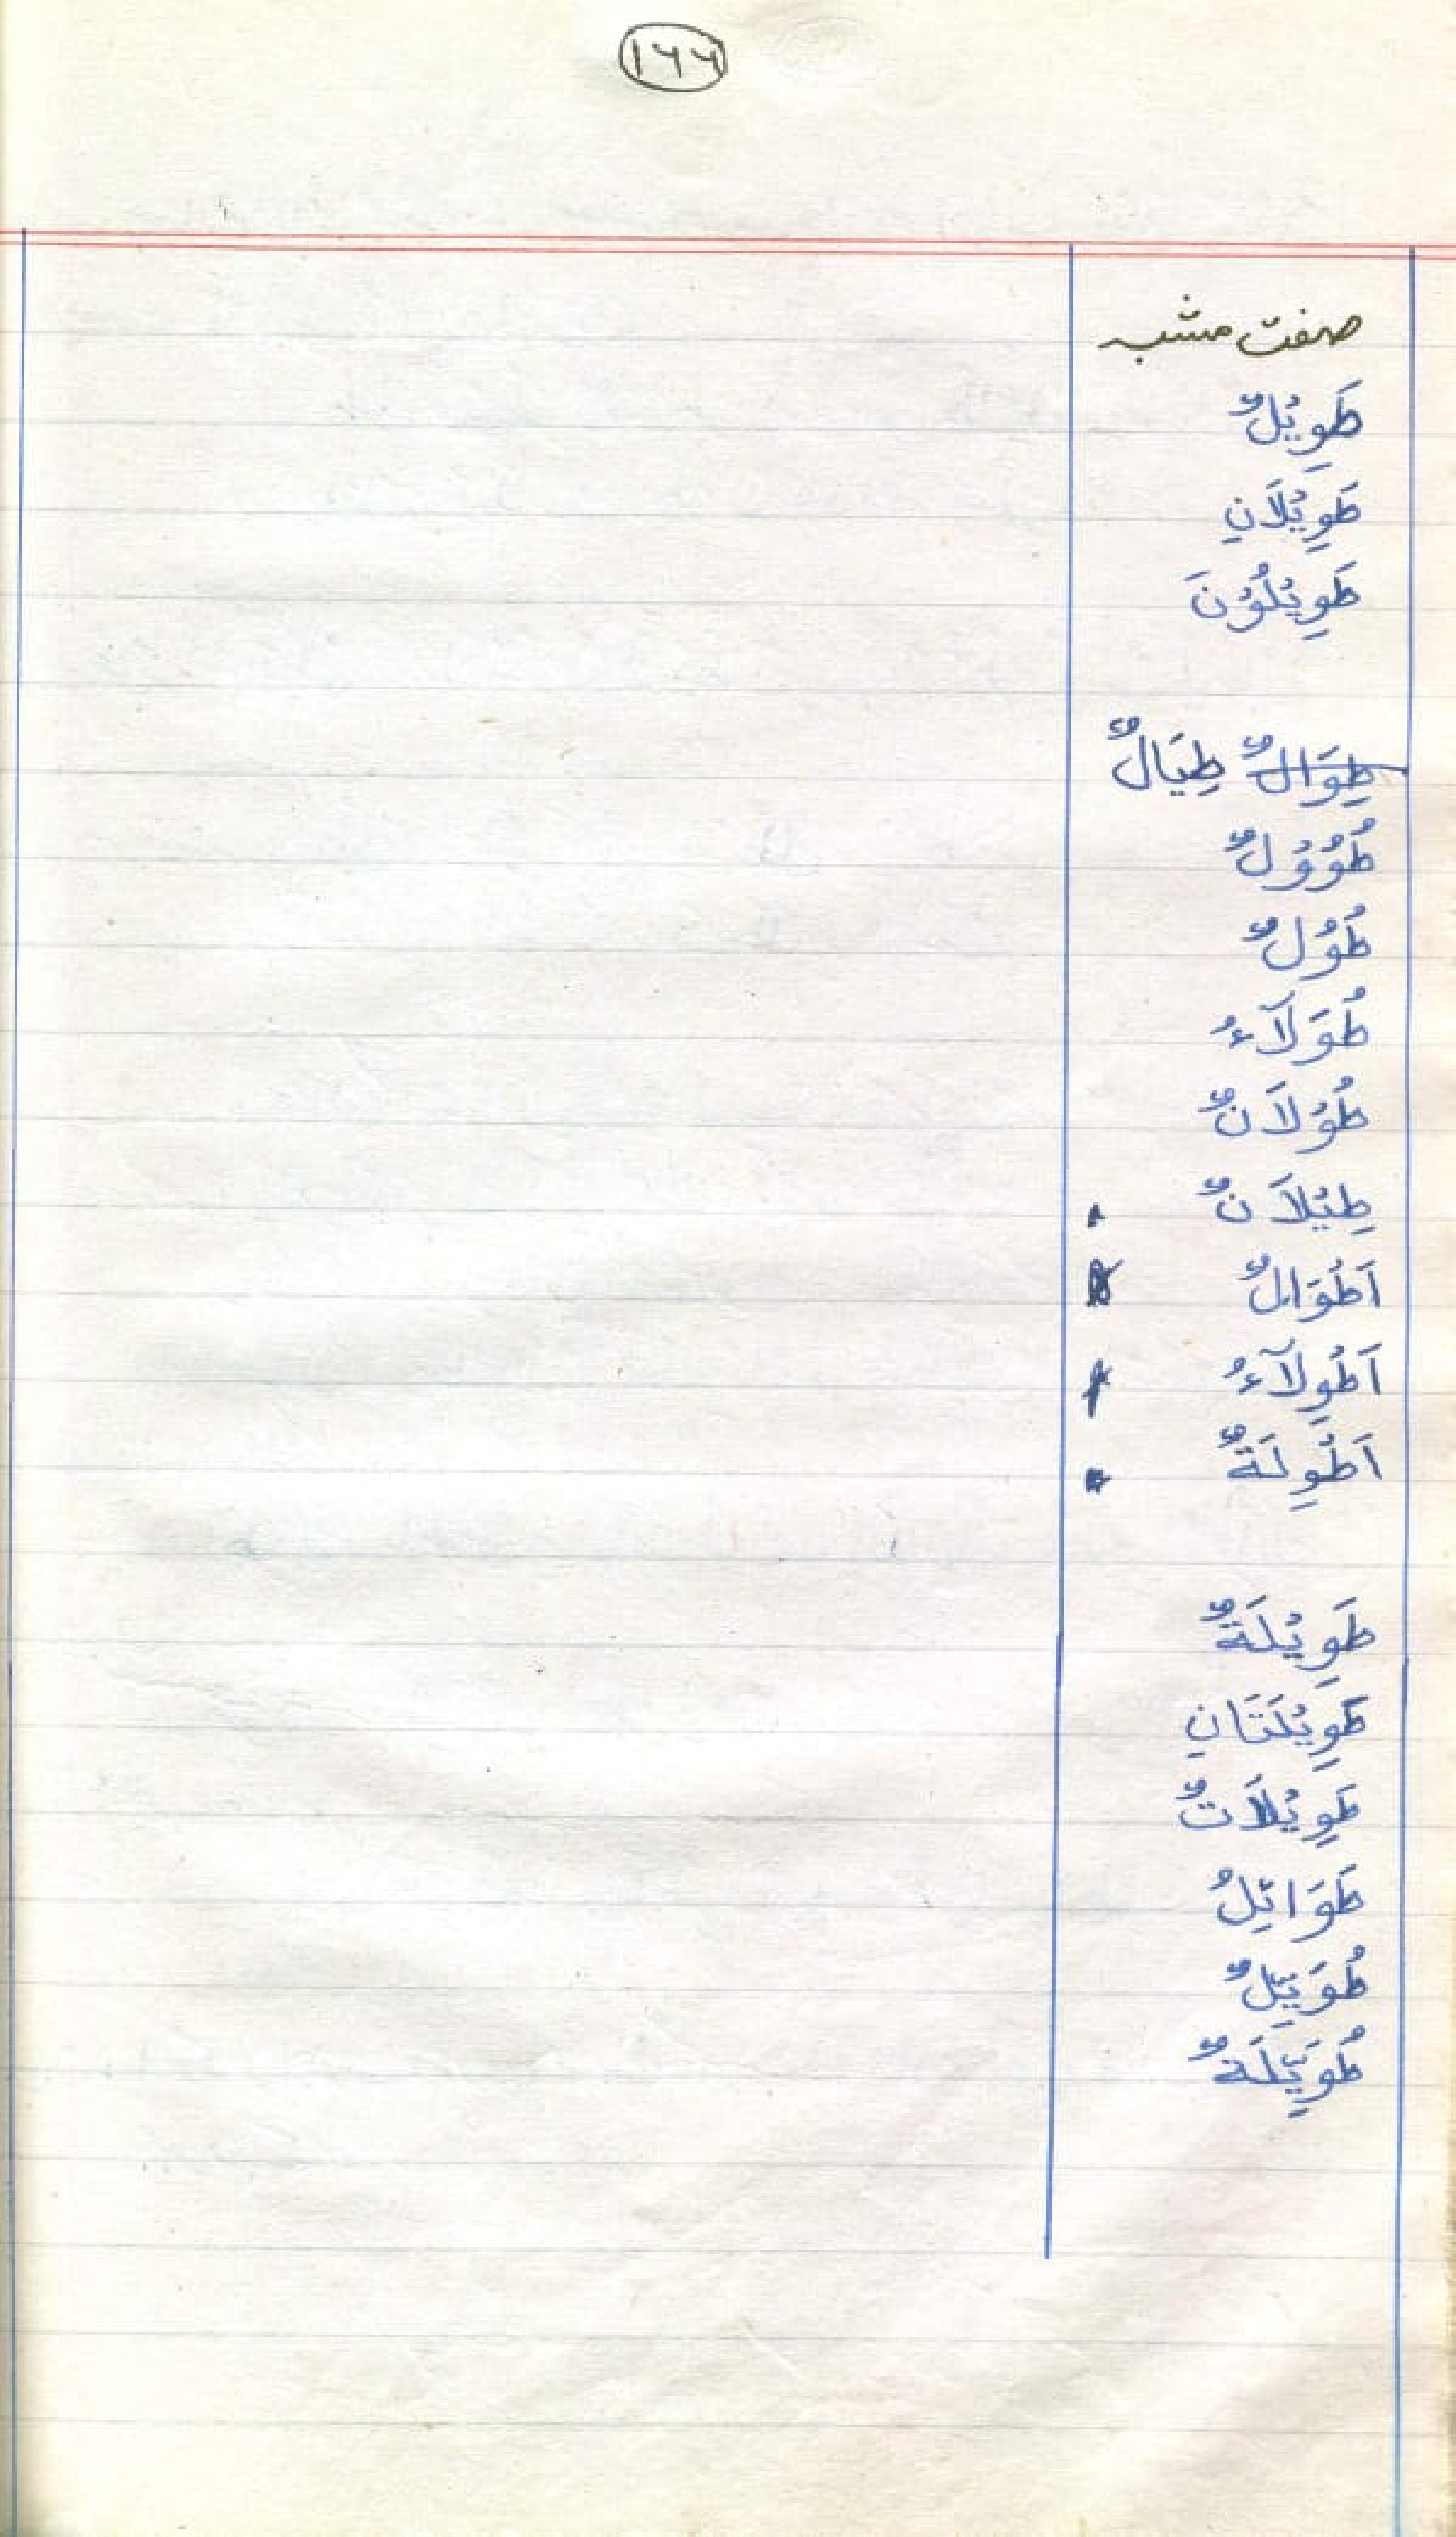 ۱۶۶
صفت مشبہ
طَوِيْلٌ
طَوِيْلَانِ
طَوِيْلُوْنَ
طِوَالٌ طِيَالٌ
طُوُوْلٌ
طُوْلٌ
طُوَلَآءُ
طُوْلَانٌ
طِيْلَانٌ
اَطْوَالٌ
اَطْوِلَآءُ
اَطْوِلَةٌ
طَوِيْلَةٌ
طَوِيْلَتَانِ
طَوِيْلَاتٌ
طَوَائِلُ
طُوَيِّلٌ
طُوَيِّلَةٌ